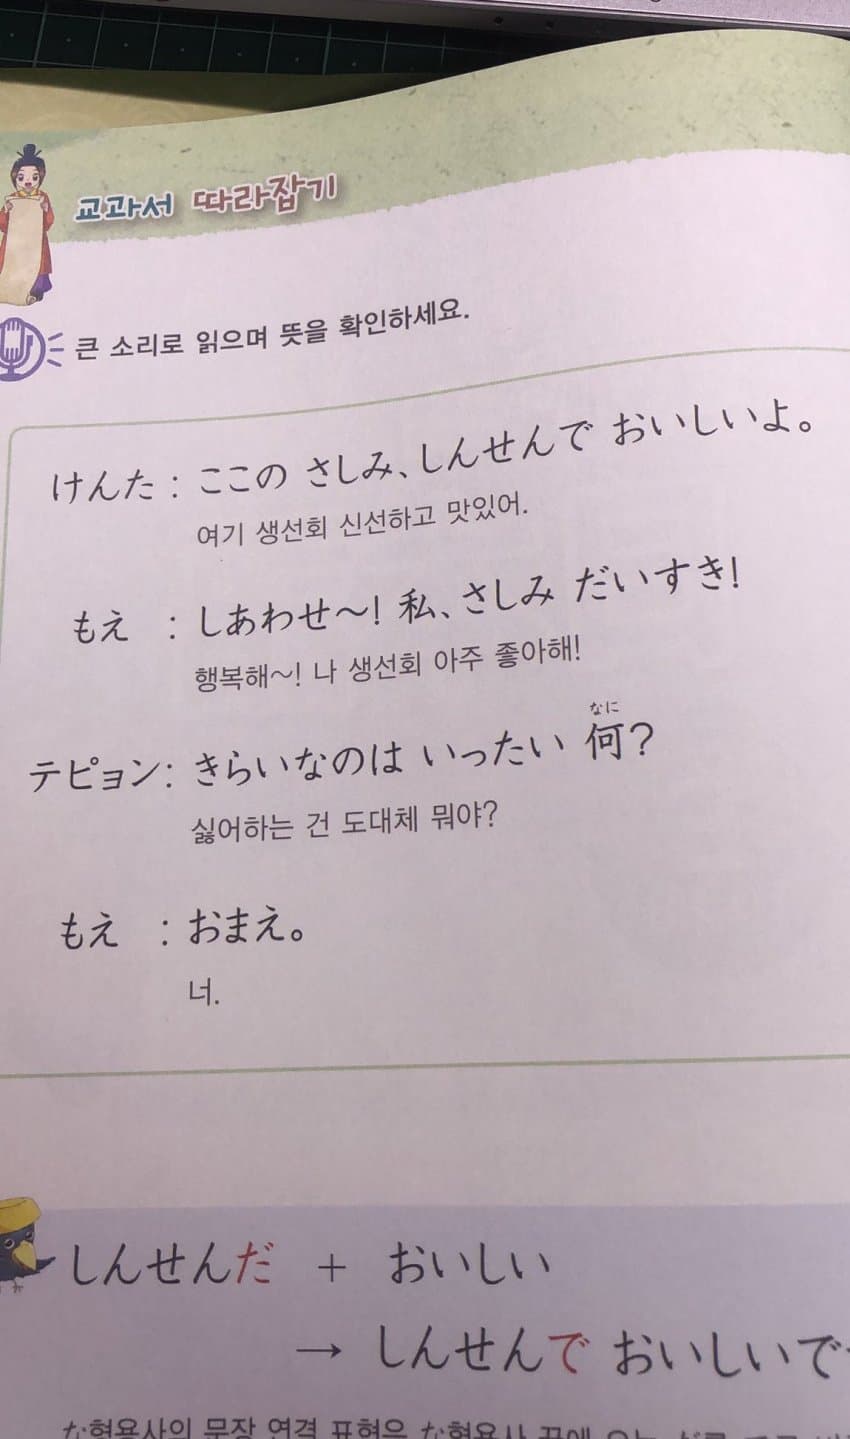 교과서 따라잡기
큰 소리로 읽으며 뜻을 확인하세요.
けんた : ここの さしみ、しんせんで おいしいよ。
여기 생선회 신선하고 맛있어.
もえ : しあわせ〜! 私、さしみ だいすき!
행복해~! 나 생선회 아주 좋아해!
なに
テピョン: きらいなのは いったい 何?
싫어하는 건 도대체 뭐야?
もえ : おまえ。
너.
しんせんだ + おいしい
→ しんせんで おいしいで
な형용사의 문장 연결 표현은 な형용사 끝에 오는